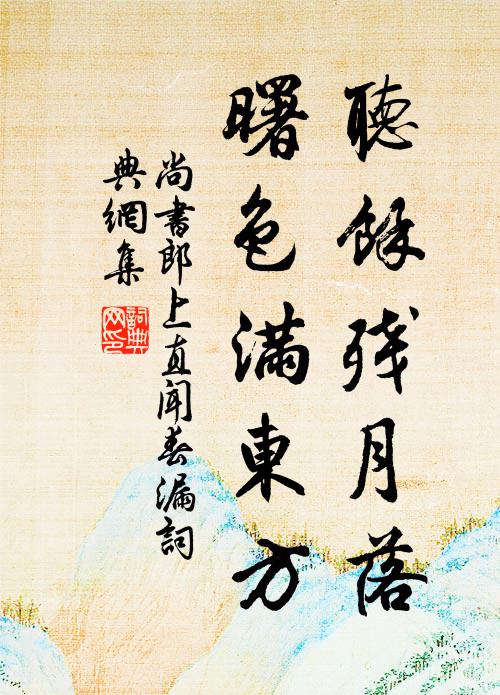 聽餘殘月落
曙色滿東方
尚書郎上直聞春漏詞
典網集
詞典网印